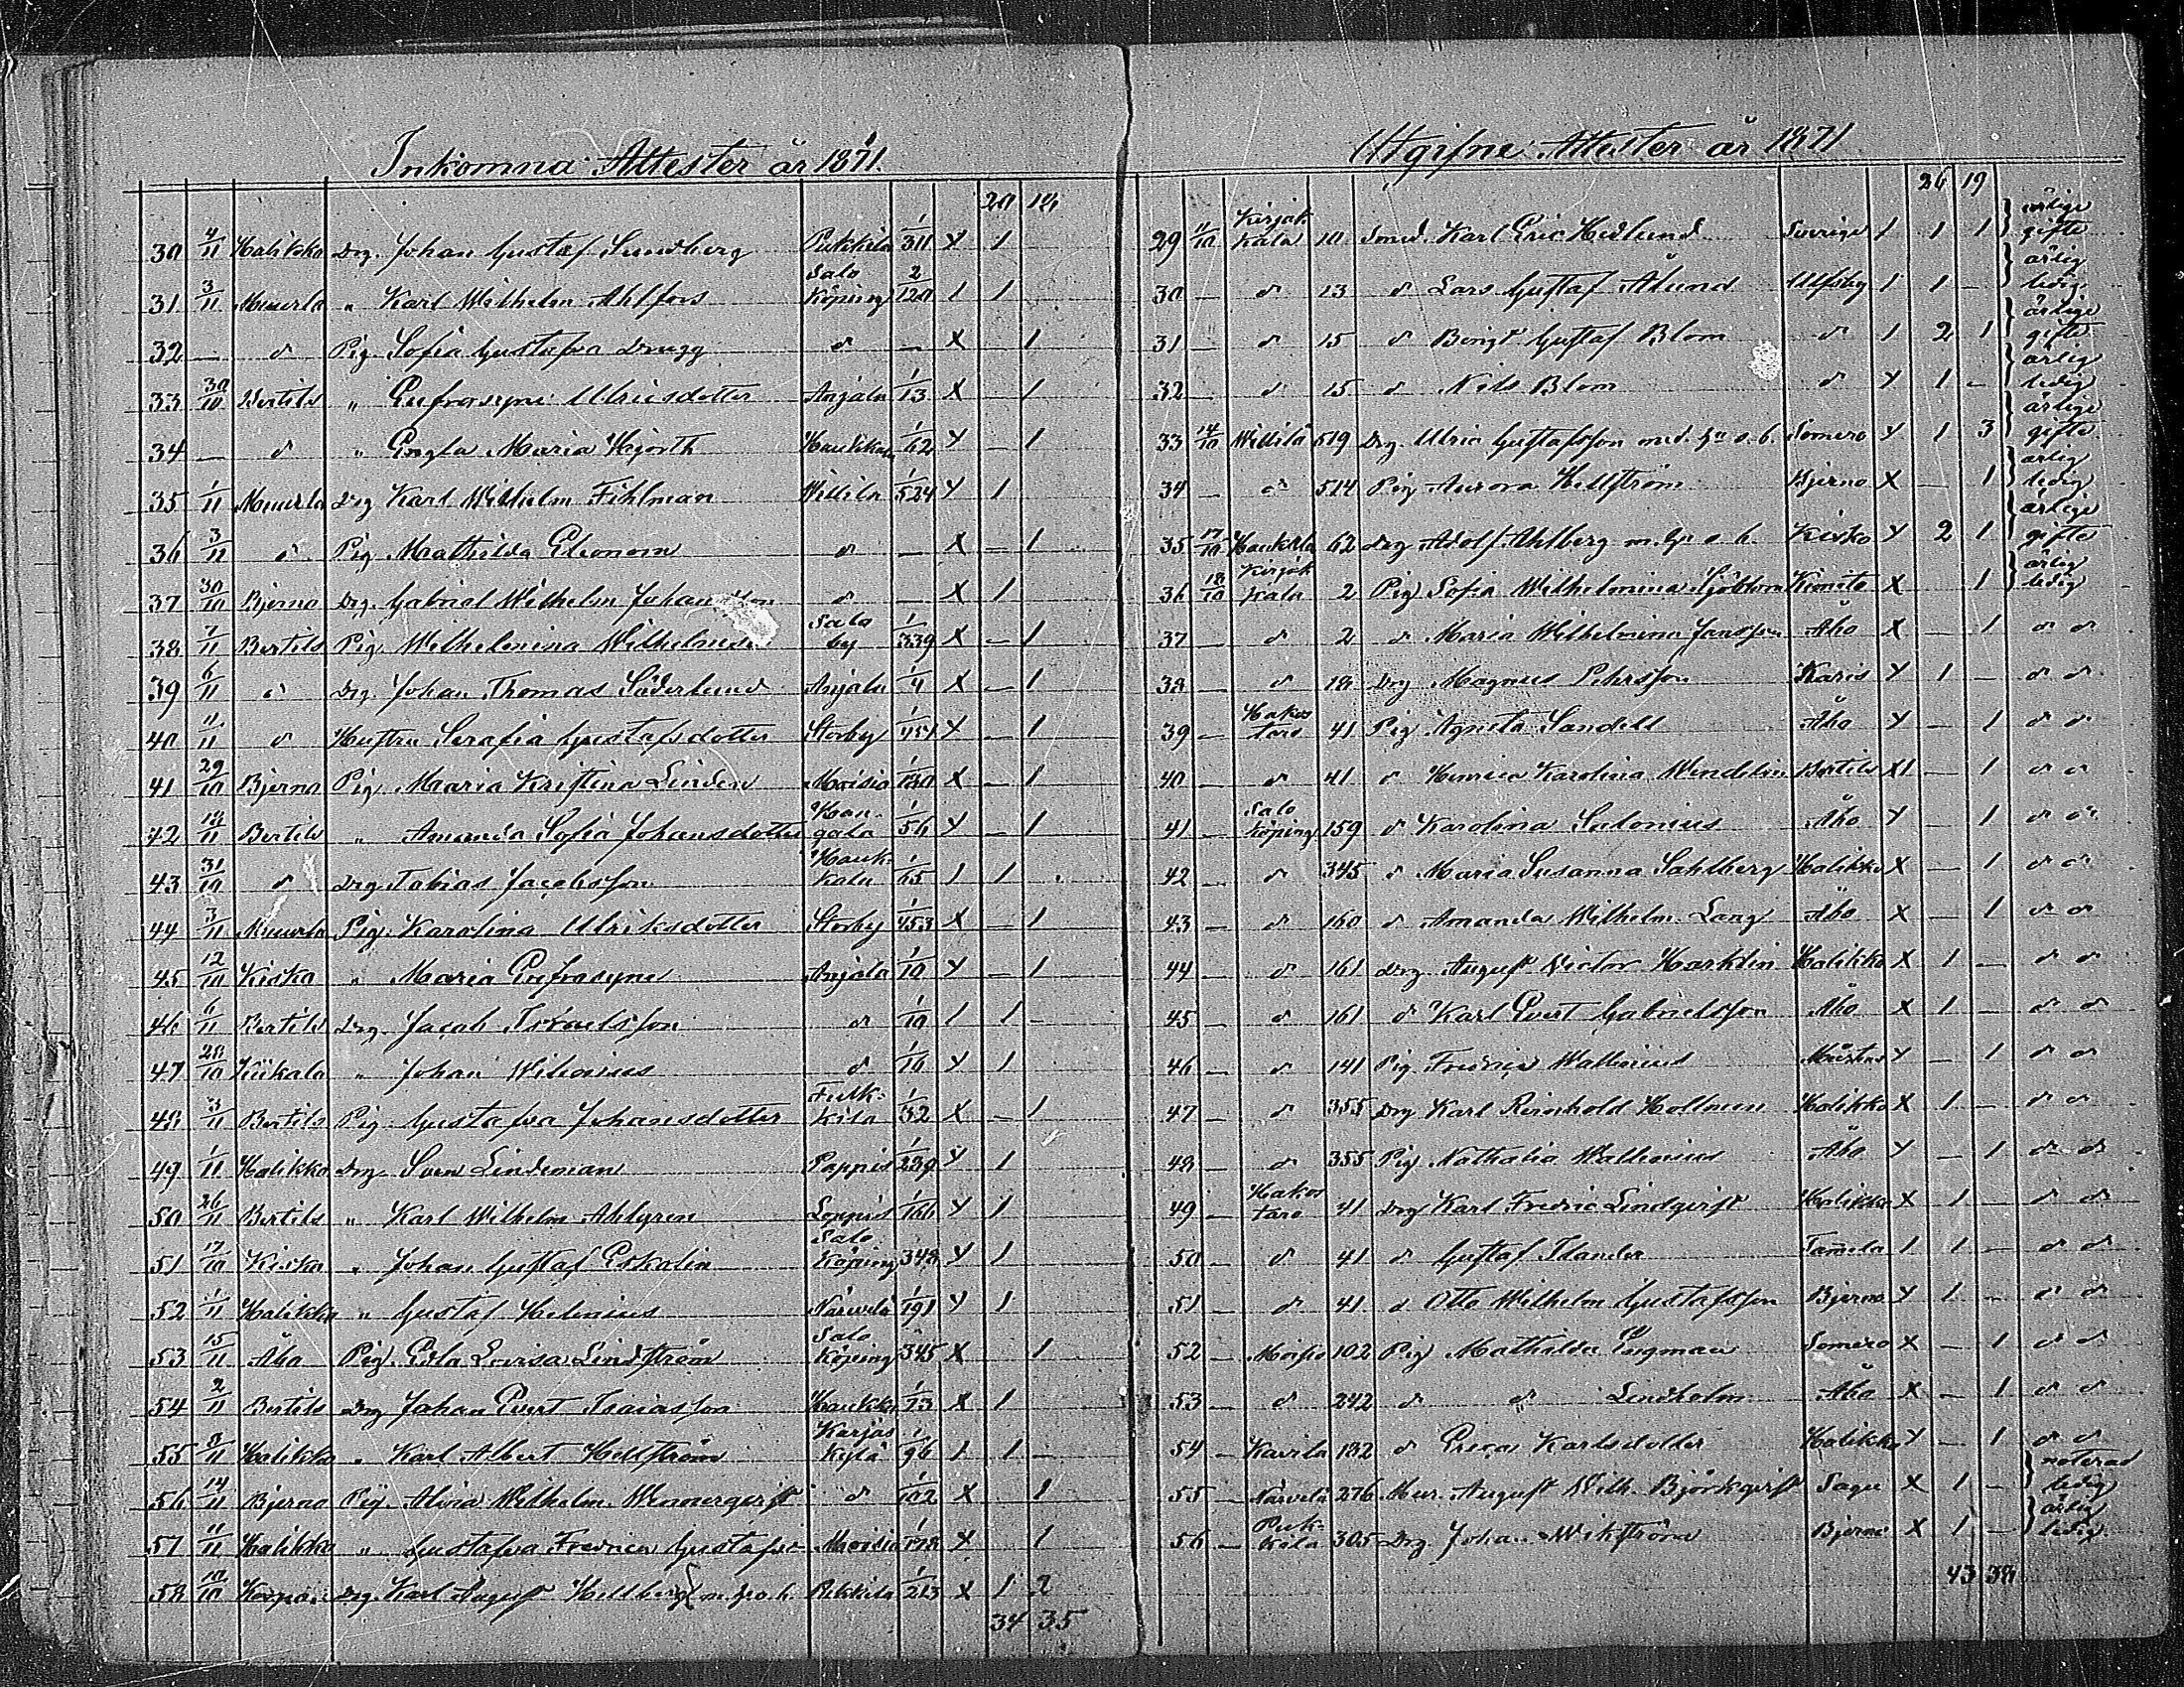 Inkomna Attester år 1871.
20 14
30 4/11 Halikko Drg. Johan Gustaf Sundberg Pukkila 1/311 X 1
31 3/11 Muurla " Karl Wilhelm Ahlfors Salo Köping 2/120 1 1
32 — d Pig. Sofia Gustafva Drugg d — X 1
33 30/10 Bertils " Eufrosyne Ulricsdotter Anjala 1/13 X 1
34 — d " Engla Maria Hjorth 1/62 Y — 1
35 1/11 Muurla Drg Karl Wilhelm Fihlman Willila 1/524 Y 1
36 3/11 d Pig. Mathilda d — X — 1
37 30/10 Bjerno Drg. Gabriel Wilhelm d — X 1
38 7/11 Bertils Pig. Wilhelmina Salo by 1/339 X — 1
39 6/11 d Drg. Johan Thomas Söderlund Anjala 1/4 X — 1
40 11/11 d Hustru Serafia Gustafsdotter Storby 1/454 Y — 1
41 29/10 Bjerno Pig. Maria Kristina Linden Moisio 1/180 X — 1
42 12/11 Bertils " Amanda Sofia Johansdotter 1/56 Y — 1
43 31/10 d Drg. Tobias Jacobsson Hauk-kala 1/65 1 1
44 3/11 Muurla Pig. Karolina Ulriksdotter Storby 1/453 X — 1
45 12/10 Kisko " Maria Eufrosyne Anjala 1/10 Y — 1
46 6/11 Bertils Drg. Jacob Israelsson d 1/10 1 1 -
47 28/10 Kiikala " Johan d 1/10 Y 1
48 3/11 Bertils Pig. Gustafva Johansdotter 1/32 X — 1
49 1/11 Halikko Drg Sven Lindeman 1/239 Y 1
50 26/11 Bertils " Karl Wilhelm Ahlgren 1/166 Y 1
51 17/10 Kisko " Johan Gustaf Eskolin Salo Köping 1/348 Y 1
52 1/11 Halikko " Gustaf Helenius 1/191 Y 1
53 15/11 Åbo Pig. Edla Lovisa Lindström Salo Köping 345 X 1
54 2/11 Bertils Drg Johan Evert Isaiasson 1/73 X 1
55 8/11 Halikko " Karl Albert Hellström Karjas Kylä 1/96 1 1 -
56 14/11 Bjerno Pig. Wilhelm. Wennerqvist d 1/102 X 1
57 11/11 Halikko " Gustafva Fredrica Moisio 1/178 X 1
58 10/10 Drg. Karl August Hellberg m. h. o. h. Pukkila 1/213 X 1 2
34 35
Utgifne Attester år 1871
26 19
29 11/10 Kirjakkala 10 Smed. Karl Eric Hedlund Sverige 1 1 1 ärlige gifte
30 — d 13 d Lars Gustaf Ålund Ulfsby 1 1 — ärlig ledig
31 — d 15 d Bengt Gustaf Blom d 1 2 1 ärlige gifte
32 — d 15 d Nils Blom d Y 1 - ärlig ledig
33 14/10 Willilä 519 Drg. Ulric Gustafsson med h. o. b. Somero Y 1 3 ärlige gifte
34 — d 514 Pig Aurora Hellström Bjerno X — 1 ärlig ledig
35 17/10 62 Drg Adolf Ahlberg m. h. o. b. Kisko Y 2 1 ärlige gifte
36 18/10 Kirjakkala 2 Pig Sofia Wilhelmina Sjöblom Kimito X 1 ärlig ledig
37 — d 2 d Maria Wilhelmina Jansson Åbo X — 1 d d
38 — d 18 Drg Magnus Pehrsson Karis Y 1 — d d
39 — Hakostaro 41 Pig Agneta Sandell Åbo Y — 1 d d
40 — d 41 d Henrica Karolina Wendelin Bertils X1 — 1 d d
41 — Salo Köping 159 d Karolina Salonius Åbo Y — 1 d d
42 — d 345 d Maria Susanna Sahlberg Halikko X — 1 d d
43 — d 160 d Amanda Wilhelm. Lang Åbo X — 1 d d
44 — d 161 Drg. August Victor Harklin Halikko X 1 — d d
45 — d 161 d Karl Evert Gabrielsson Åbo X 1 — d d
46 — d 141 Pig. Fredrica Wallenius Y — 1 d d
47 — d 355 Drg Karl Reinhold Hollmen Halikko X 1 — d d
48 — d 355 Pig Nathalia Wallenius Åbo Y — 1 d d
49 — Hakostaro 41 Drg Karl Fredric Lindqvist Halikko X 1 d d
50 — d 41 d Gustaf Ilander Tammela 1 1 — d d
51 — d 41 d Otto Wilhelm Gustafsson Bjerno Y 1 — d d
52 — Moisio 102 Pig Mathilda Engman Somero X — 1 d d
53 — d 242 d d Lindholm Åbo X — 1 d d
54 — Kavila 132 d Erica Karlsdotter Halikko Y — 1 d d
55 — Närvilä 276 Mur. August Wilh. Björkqvist Sagu X 1 — noterad ledig
56 — Puk-kila 305 Drg. Johan Wikström Bjerno X 1 — ärlig ledig
43 38